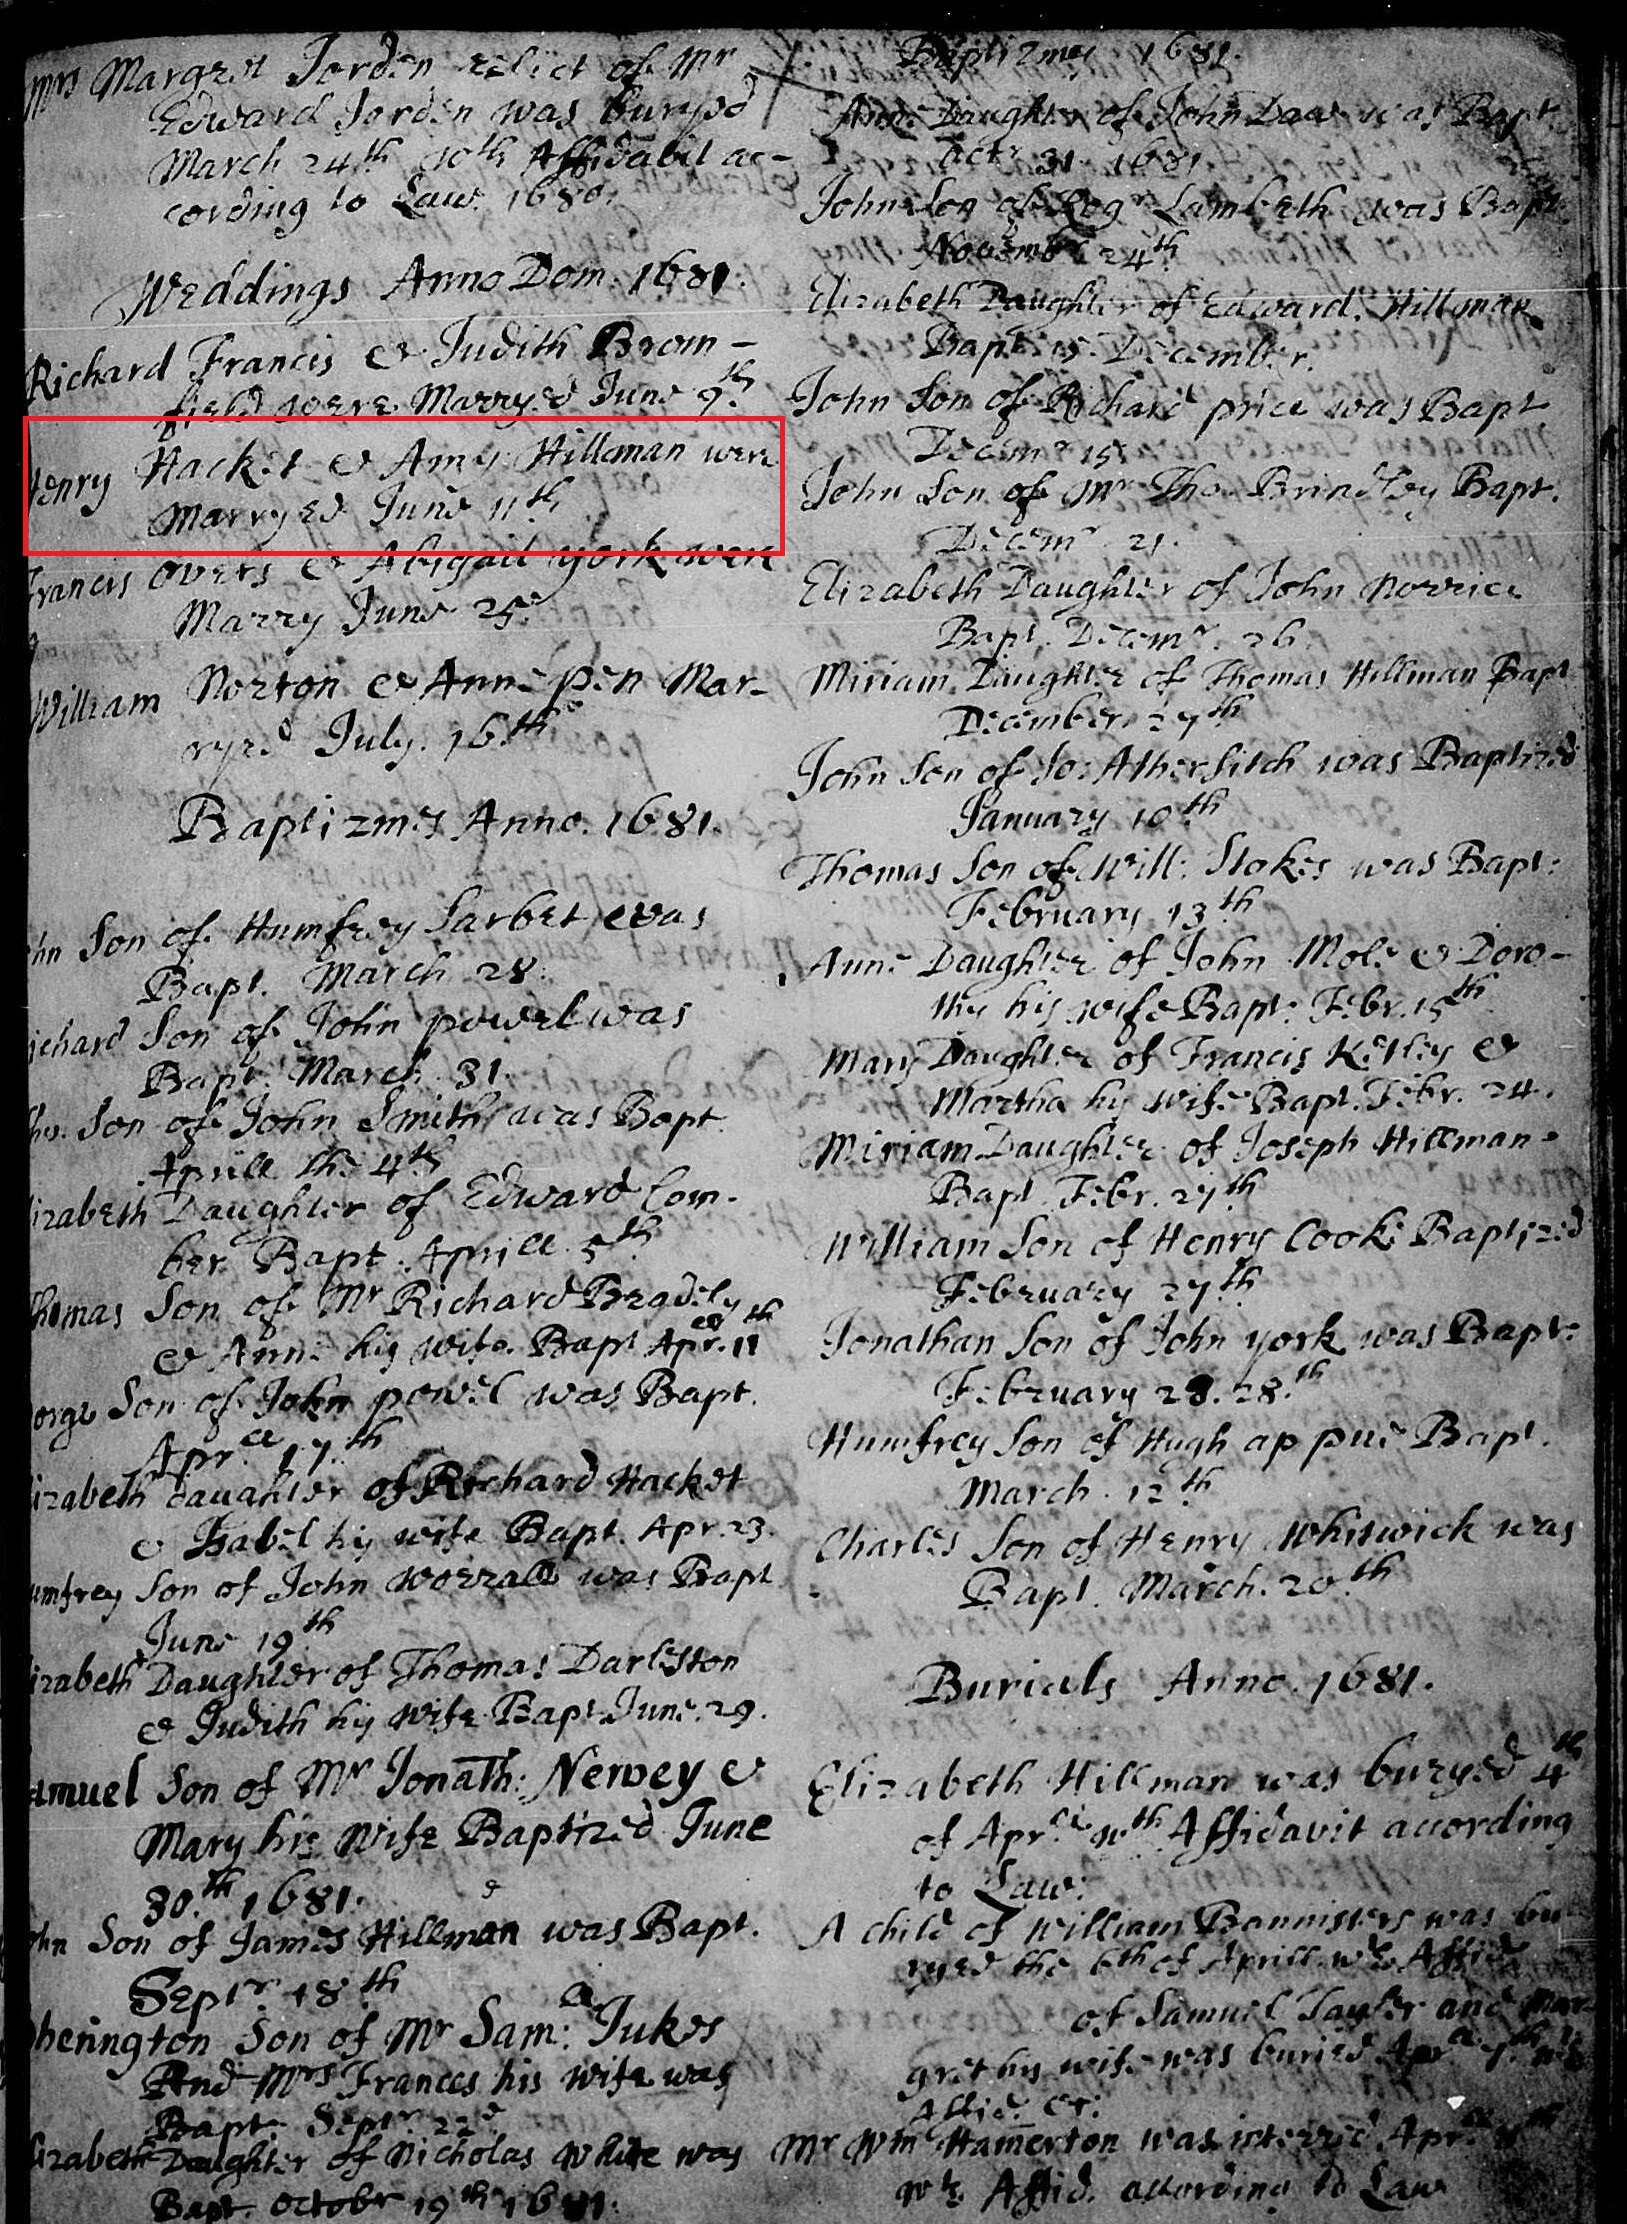 Mrs Margret Jorden relict of Mr
Edward Jorden was buryed
March 24th wth Affidavit ac-
cording to Law. 1680.
Weddings Anno Dom. 1681.
Richard Francis & Judith Brom-
field were Marryed June 9th
Henry Hacket & Amy Hillman were
Marryed June 11th
Francis Overs & Abigail York were
Marry June 25.
William Norton & Anne pen Mar-
ryed July. 16th
Baptizmes Anno. 1681.
hn Son of Humfrey Sarbet was
Bapt. March 28.
ichard Son of John powel was
Bapt. March 31.
Son of John Smith was Bapt
Aprill the 4th
izabeth Daughter of Edward Com-
ber Bapt. Aprill 5th
Thomas Son of Mr Richard Bradely
& Anne his wife Bapt Aprll. 11th
orge Son of John powel was Bapt.
Aprll 17th
izabeth daughter of Richard Hacket
& Isabel his wife Bapt. Apr. 23.
umfrey Son of John Worrall was Bapt
June 19th
izabeth Daughter of Thomas Darleston
& Judith his wife Bapt June. 29.
amuel Son of Mr Jonath: Nervey &
Mary his Wife Baptized June
30th 1681.
ohn Son of James Hillman was Bapt.
Septr. 18th
herington Son of Mr Sam: Jukes
And Mrs Frances his wife was
Bapt. Septr 22d
lizabeth Daughter of Nicholas White was
Bapt. October 19th 1681.
Baptizmes 1681.
Anne Daughter of John Daw was Bapt
Octr 31 1681
John Son of Rogr Lambeth was Bapt.
Novembr 24th
Elizabeth Daughter of Edward Hillman
Bapt. 15. December.
John Son of Richard price was Bapt
Decemr 15
John Son of Mr Tho. Brindley Bapt.
Decemr 21.
Elizabeth Daughter of John Norrice
Bapt. Decemr. 26.
Miriam Daughter of Thomas Hillman Bapt
December 27th
John Son of Jo: Athersitch was Baptized
January 10th
Thomas Son of Will: Stokes was Bapt:
February 13th
Anne Daughter of John Mole & Doro-
thy his wife Bapt: Febr. 15th
Mary Daughter of Francis Ketley &
Martha his wife Bapt. Febr. 24.
Miriam Daughter of Joseph Hillman
Bapt Febr. 27th
William Son of Henry Cooke Baptized
February 27th
Jonathan Son of John York was Bapt:
February 28. 28th
Humfrey Son of Hugh ap pue Bapt.
March. 12th
Charles Son of Henry Whitwick was
Bapt. March. 20th
Burials Anno. 1681.
Elizabeth Hillman was buryed 4th
of Aprll wth Affidavit according
to Law.
A child of William Bannisters was bu-
ryed the 6th of Aprill wth Affid
of Samuel Tayler and Mar-
gret his wife was buried Aprll 7th wth
Affid. &c:
Mr Wm Hamerton was interred Aprll
wth Affid. according to Law